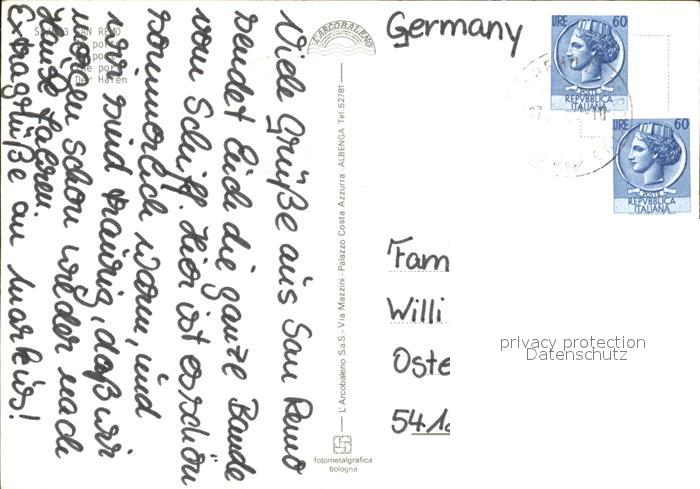 Viele Grüße aus San Remo
sendet Euch die ganze Bande
vom Schiff. Hier ist es schön
sommerlich warm, und
wir sind traurig, daß wir
morgen schon wieder nach
Hause fahren.
Extragrüße an Markus!
SAN REMO
Der Hafen
L'ARCOBALENO
L'Arcobaleno S.a.S. - Via Mazzini - Palazzo Costa Azzurra - ALBENGA Tel. 52781
fotometalgrafica
bologna
Germany
LIRE 60
POSTE
REPVBBLICA
ITALIANA
LIRE 60
POSTE
REPVBBLICA
ITALIANA
Fam
Willi
Oste
541
privacy protection
Datenschutz